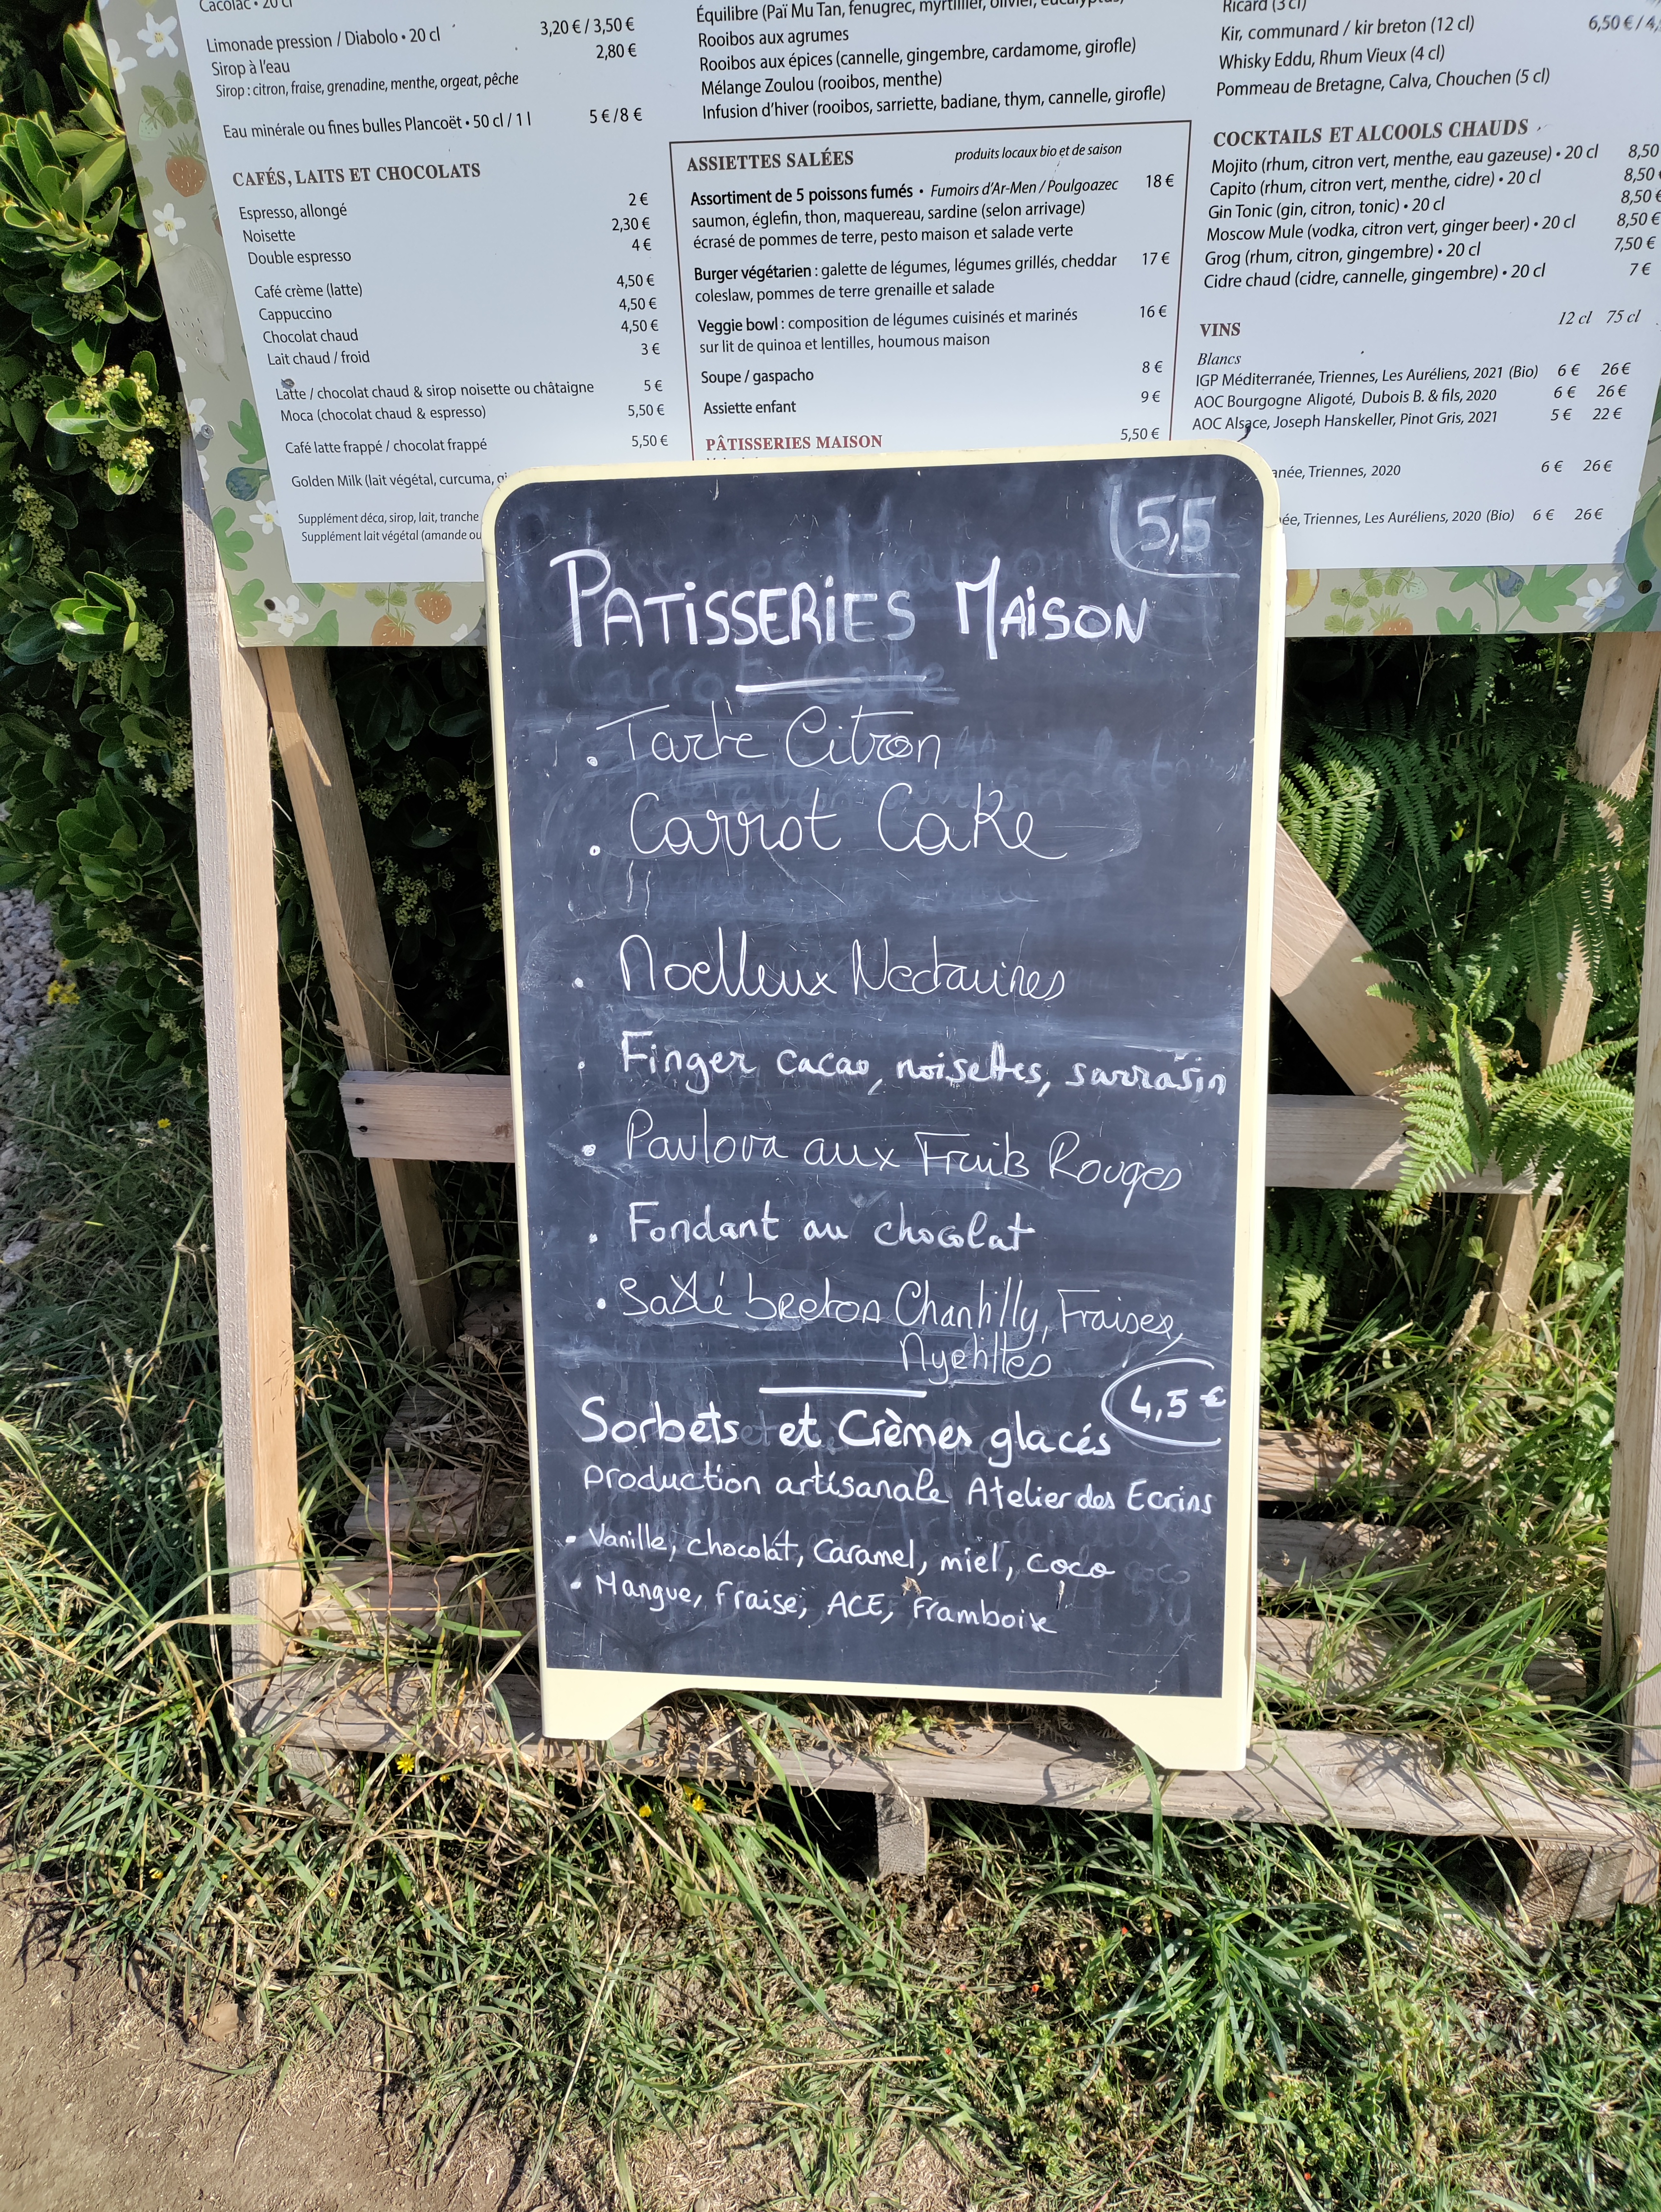 Cacolac • 20 cl
Limonade pression / Diabolo • 20 cl 3,20 € / 3,50 €
Sirop à l'eau 2,80 €
Sirop : citron, fraise, grenadine, menthe, orgeat, pêche
Eau minérale ou fines bulles Plancoët • 50 cl / 1 l 5 € / 8 €
CAFÉS, LAITS ET CHOCOLATS
Espresso, allongé 2 €
Noisette 2,30 €
Double espresso 4 €
Café crème (latte) 4,50 €
Cappuccino 4,50 €
Chocolat chaud 4,50 €
Lait chaud / froid 3 €
Latte / chocolat chaud & sirop noisette ou châtaigne 5 €
Moca (chocolat chaud & espresso) 5,50 €
Café latte frappé / chocolat frappé 5,50 €
Golden Milk (lait végétal, curcuma,
Supplément déca, sirop, lait, tranche
Supplément lait végétal (amande ou
Équilibre (Paï Mu Tan, fenugrec, myrtillier, olivier, eucalyptus)
Rooibos aux agrumes
Rooibos aux épices (cannelle, gingembre, cardamome, girofle)
Mélange Zoulou (rooibos, menthe)
Infusion d'hiver (rooibos, sarriette, badiane, thym, cannelle, girofle)
ASSIETTES SALÉES produits locaux bio et de saison
Assortiment de 5 poissons fumés • Fumoirs d'Ar-Men / Poulgoazec 18 €
saumon, églefin, thon, maquereau, sardine (selon arrivage)
écrasé de pommes de terre, pesto maison et salade verte
Burger végétarien : galette de légumes, légumes grillés, cheddar 17 €
coleslaw, pommes de terre grenaille et salade
Veggie bowl : composition de légumes cuisinés et marinés 16 €
sur lit de quinoa et lentilles, houmous maison
Soupe / gaspacho 8 €
Assiette enfant 9 €
PÂTISSERIES MAISON 5,50 €
Ricard (3 cl)
Kir, communard / kir breton (12 cl) 6,50 € / 4,
Whisky Eddu, Rhum Vieux (4 cl)
Pommeau de Bretagne, Calva, Chouchen (5 cl)
COCKTAILS ET ALCOOLS CHAUDS
Mojito (rhum, citron vert, menthe, eau gazeuse) • 20 cl 8,50
Capito (rhum, citron vert, menthe, cidre) • 20 cl 8,50 €
Gin Tonic (gin, citron, tonic) • 20 cl 8,50 €
Moscow Mule (vodka, citron vert, ginger beer) • 20 cl 8,50 €
Grog (rhum, citron, gingembre) • 20 cl 7,50 €
Cidre chaud (cidre, cannelle, gingembre) • 20 cl 7 €
VINS 12 cl 75 cl
Blancs
IGP Méditerranée, Triennes, Les Auréliens, 2021 (Bio) 6 € 26 €
AOC Bourgogne Aligoté, Dubois B. & fils, 2020 6 € 26 €
AOC Alsace, Joseph Hanskeller, Pinot Gris, 2021 5 € 22 €
anée, Triennes, 2020 6 € 26 €
ée, Triennes, Les Auréliens, 2020 (Bio) 6 € 26 €
5,5
PATISSERIES MAISON
• Tarte Citron
• Carrot Cake
• Moelleux Nectarines
• Finger cacao, noisettes, sarrasin
• Pavlova aux Fruits Rouges
• Fondant au chocolat
• Sablé breton Chantilly, Fraises,
Myrtilles
4,5 €
Sorbets et Crèmes glacés
production artisanale Atelier des Ecrins
• Vanille, chocolat, Caramel, miel, coco
• Mangue, fraise, ACE, Framboise